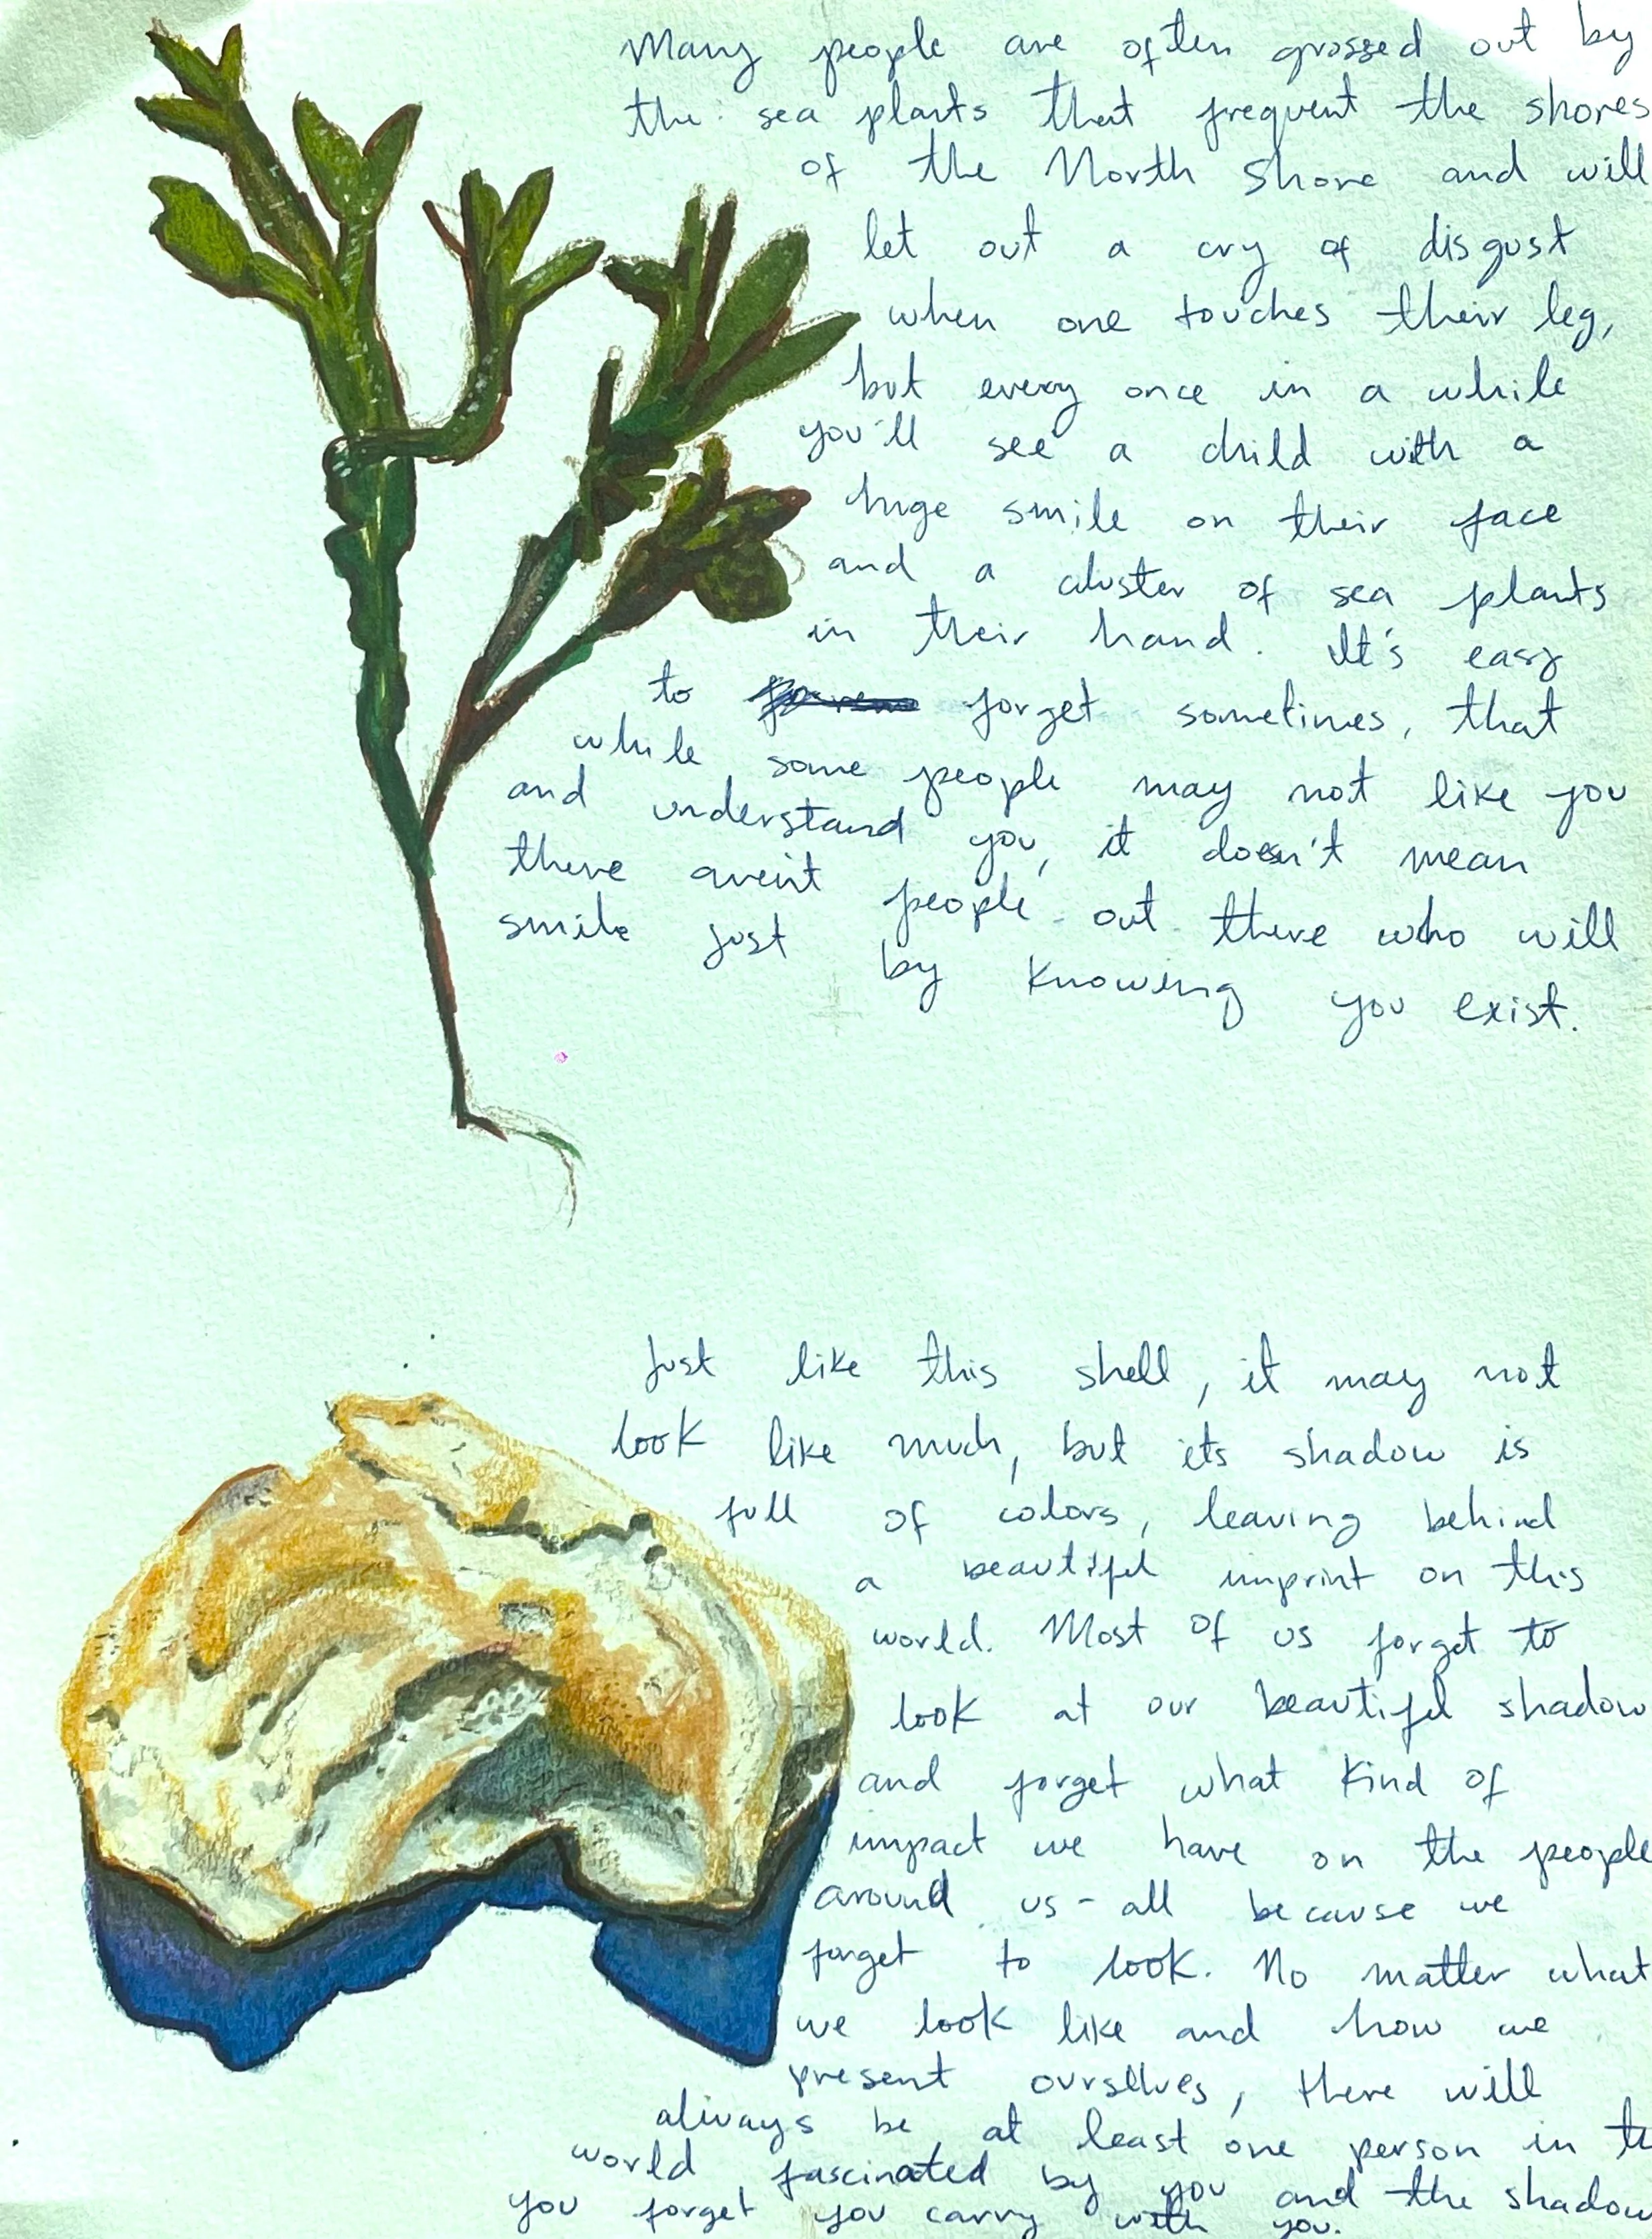 Many people are often grossed out by
the sea plants that frequent the shores
of the North Shore and will
let out a cry of disgust
when one touches their leg,
but every once in a while
you'll see a child with a
huge smile on their face
and a cluster of sea plants
in their hand. It's easy
to forget sometimes, that
while some people may not like you
and understand you, it doesn't mean
there aren't people out there who will
smile just by knowing you exist.
Just like this shell, it may not
look like much, but its shadow is
full of colors, leaving behind
a beautiful imprint on this
world. Most of us forget to
look at our beautiful shadow
and forget what kind of
impact we have on the people
around us - all because we
forget to look. No matter what
we look like and how we
present ourselves, there will
always be at least one person in
world fascinated by you and the shadow
you forget you carry with you.